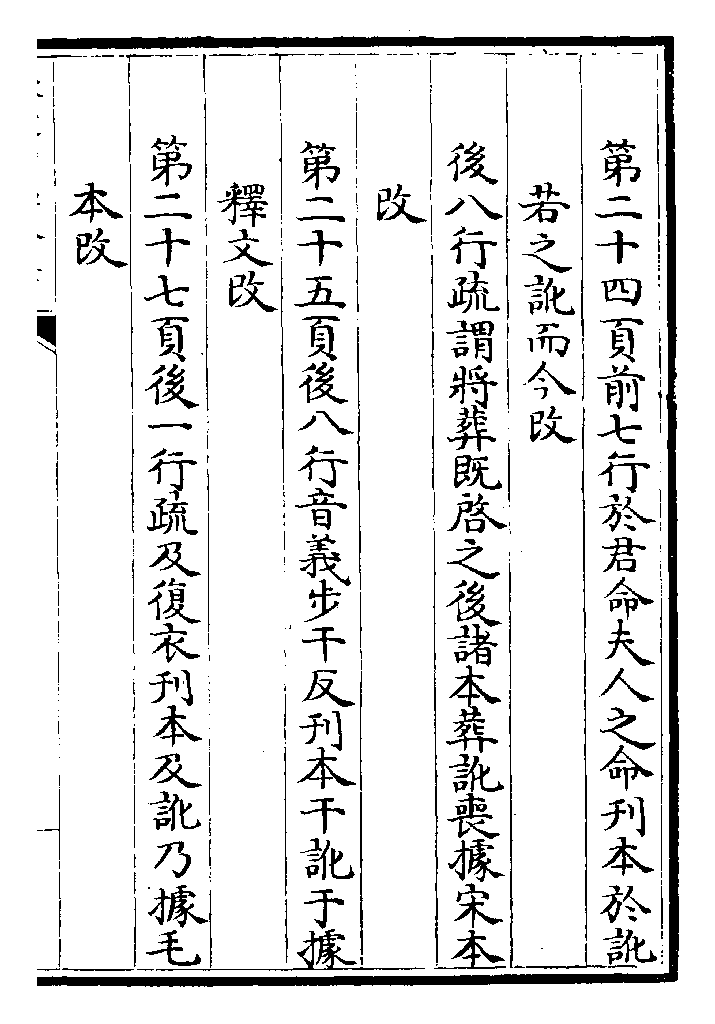 第二十四頁前七行於君命夫人之命刊本於訛
若之訛而今改
後八行疏謂將葬既啓之後諸本葬訛喪據宋本
改
第二十五頁後八行音義步干反刊本干訛于據
釋文改
第二十七頁後一行疏及復衣刊本及訛乃據毛
本改